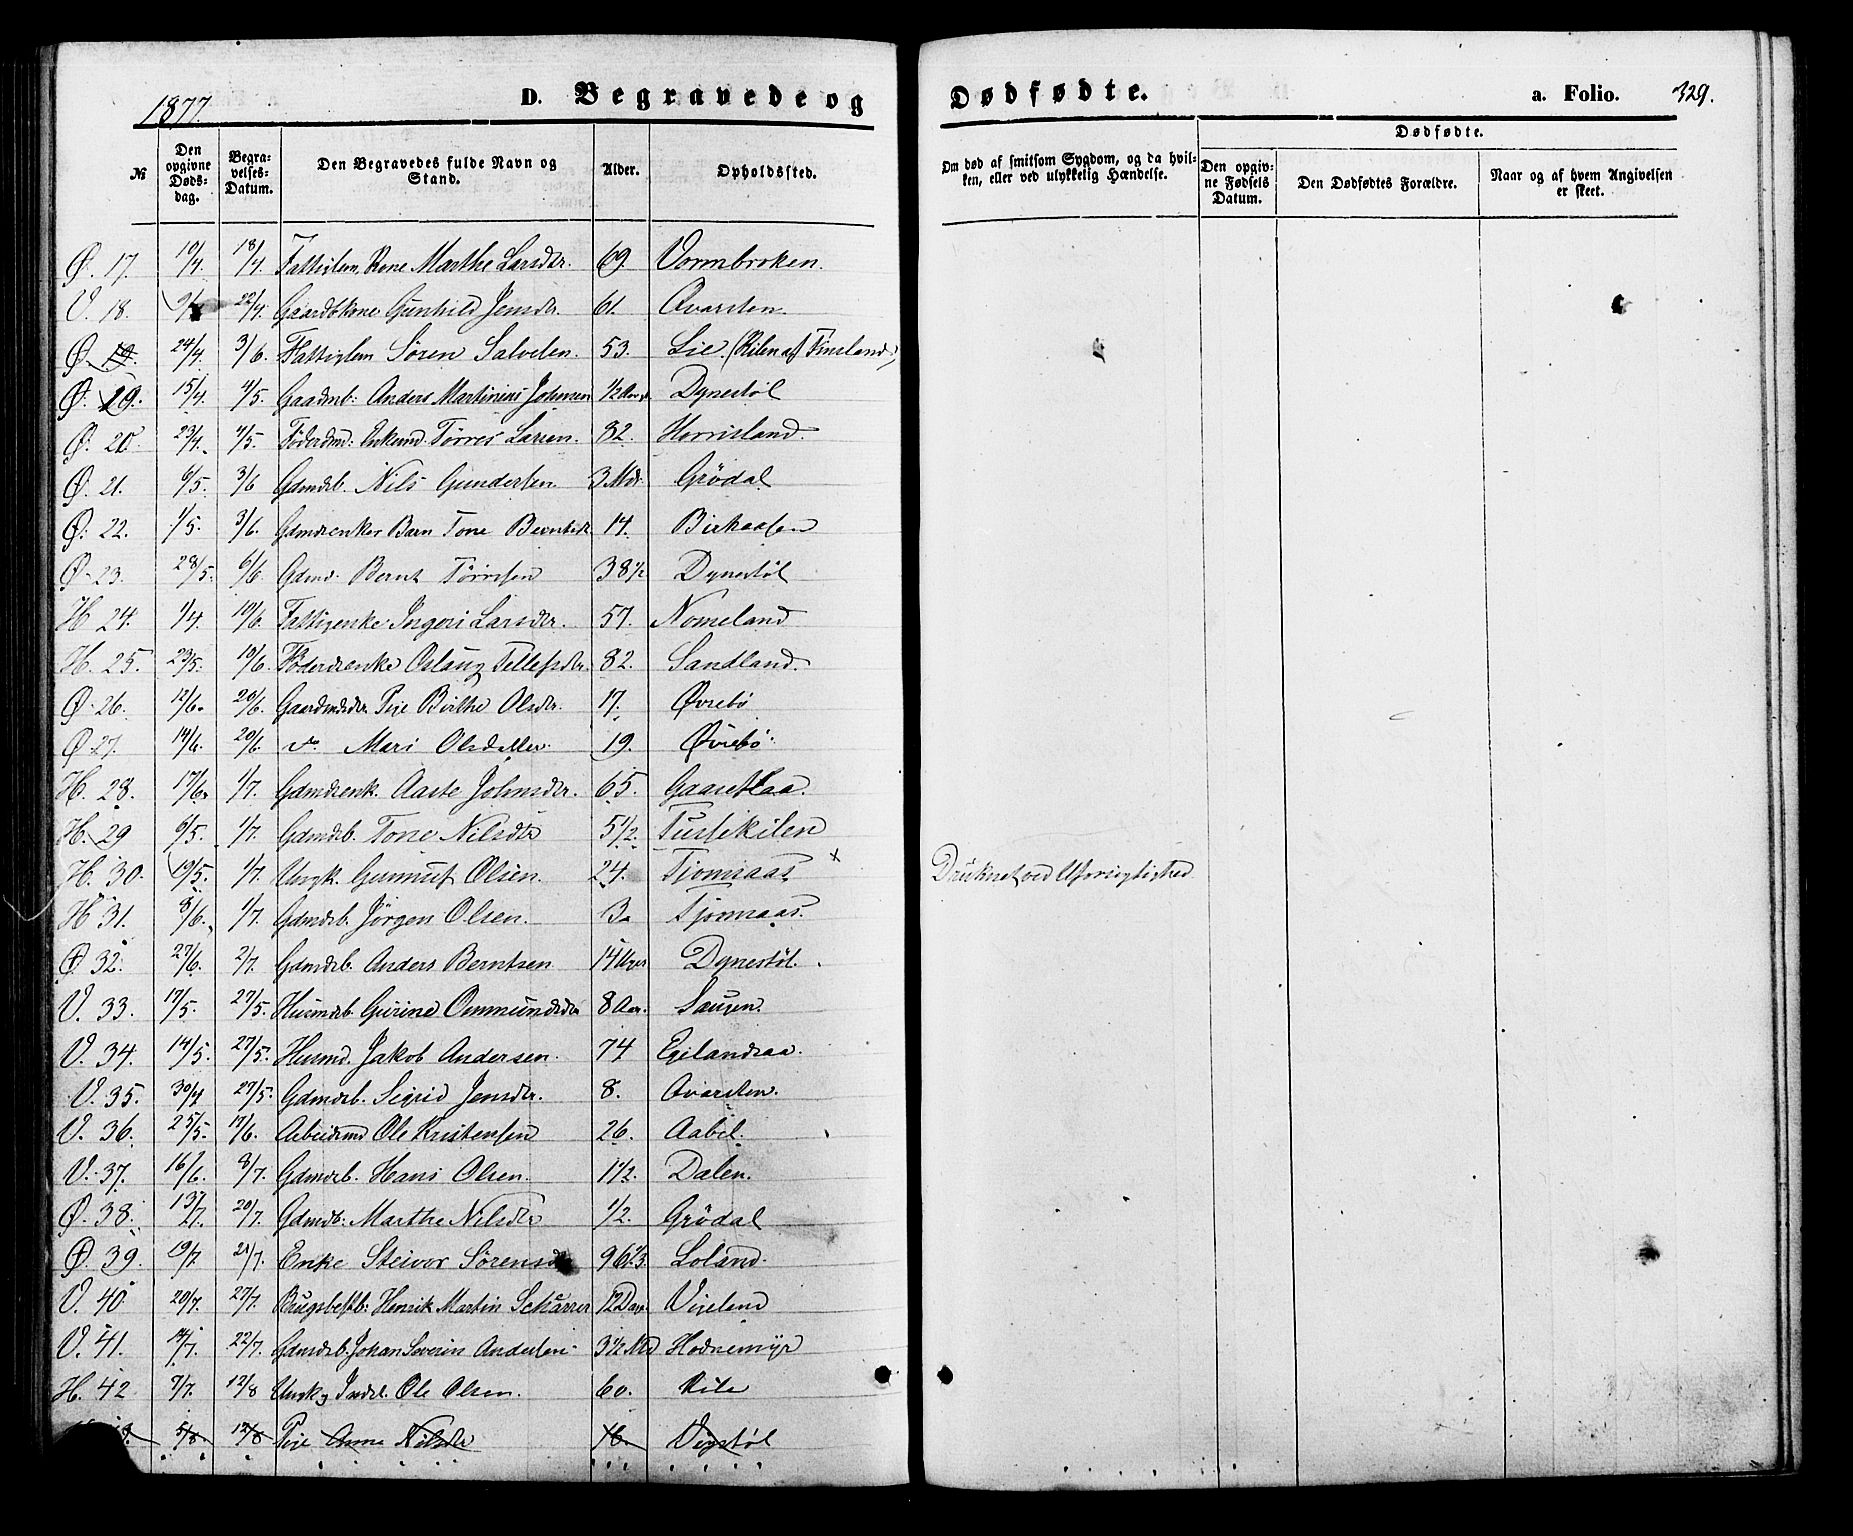 1877. D. Begravede og Dødfødte. a. Folio. 329.
Dødfødte.
№ Den opgivne Døds-dag. Begra-velses-Datum. Den Begravedes fulde Navn og Stand. Alder. Opholdssted. Om død af smitsom Sygdom, og da hvil-ken, eller ved ulykkelig Hændelse. Den opgiv-ne Fødsels Datum. Den Dødfødtes Forældre. Naar og af hvem Angivelsen er skeet.
Ø. 17. 10/4. 18/4. Fattiglem, Kone Marthe Larsdtr. 69. Vormbroken.
V. 18. 22/4. Gaardbkone Gunhild Jensdtr. 61. Qvarsten.
Ø. 19. 24/4. 3/6. Fattiglem Sören Salvesen. 53. Lie. (Kilen af Finsland)
Ø. 19. 15/4. 4/5. Anders Martinius Johnsen 1/2 Dynestöl
Ø. 20. 23/4. 4/5. Föderdmd: Enkemd. Törres Larsen. 82. Horrisland.
Ø. 21. 6/5. 3/6 Gdmdsb. Nils Gundersen. 3 Mdr. Grödal
Ø. 22. 1/5. 3/6. Gdmdsenkes Barn Tone 14. Birkaasen
Ø. 23. 28/5. 6/6. Gdmd. Bernt Törresen 38 1/2 Dynestöl
H. 24. 1/4. 10/6. Fattigenke Ingeri Larsdtr. 57. Nomeland
H. 25. 23/5. 10/6. Föderdsenke Oslaug Tellefsdtr. 82. Sandland.
Ø. 26. 12/6. 20/6. Gaardmdsdtr. Pige Birthe Olsdtr. 17. Øvrebö
Ø. 27. 14/6. 20/6. do Mari Olsdatter. 19. Øvrebö.
H. 28. 17/6. 1/7. Gdmdsenk. Aaste Johnsdtr. 65. Gaaseflaa.
H. 29 6/5. 1/7. Gdmdsb. Tone Nilsdtr 5 1/2. Tussekilen
H. 30. 19/5. 1/7. Ungk. Gunnuf Olsen. 24. Tjomsaas × Druknet ved Uforsigtighed.
H. 31. 8/6. 1/7. Gdmdsb. Jørgen Olsen. 3. Tjomsaas.
Ø. 32. 27/6. 2/7. Gdmdsb. Anders Berntsen 14 Uger Dynestöl.
V. 33. 17/5. 27/5. Husmdsb. Gurine Ommundsdtr 8 Aar. Saugen.
V. 34. 14/5. 27/5. Husmd. Jakob Andersen. 74 Egelandsaa.
V. 35. 30/4 27/5. Gdmdsb. Sigrid Jensdtr. 8. Qvarsten.
V. 36. 25/5. 17/6. Arbeidsmd Ole Kristensen 26. Aabel.
V. 37. 16/6. 8/7. Gdmdsb. Hans Olsen. 1 1/2. Dalen.
Ø. 38. 13/7. 20/7. Gdmdsb: Marthe Nilsdtr 1/2. Grödal
Ø. 39. 19/7. 21/7. Enke Steivor Sørensdtr 96 Loland.
V. 40 20/7. 27/7. Henrik Martin Schärrer 12 Dage Vigeland
V. 41. 14/7. 22/7. Gdmdsb. Johan Severin Andersen. 3 1/2 Md Hodnemyr
H. 42 7/7. 12/8 Ungk. Ole Olsen. 60. Kile
5/8. 12/8 Pige Anne Nilsdtr 16. Vigstöl